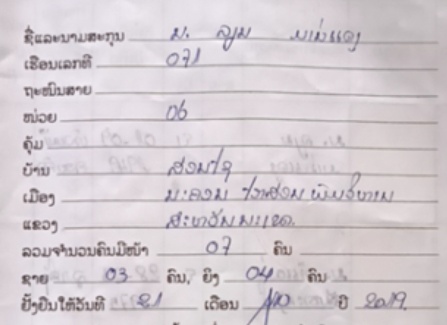 ຊື່ແລະນາມສະກຸນ ນ.
ເຮືອນເລກທີ 071
ຖະໜົນສາຍ
ໜ່ວຍ 06
ຄຸ້ມ
ບ້ານ
ເມືອງ ນະຄອນ ໄກສອນ ພົມວິຫານ
ແຂວງ ສະຫວັນນະເຂດ.
ລວມຈຳນວນຄົນມີໜ້າ 07 ຄົນ
ຊາຍ 03 ຄົນ, ຍິງ 04 ຄົນ
ຍັ້ງຢືນໃຫ້ວັນທີ 21 ເດືອນ 10 ປີ 2019.